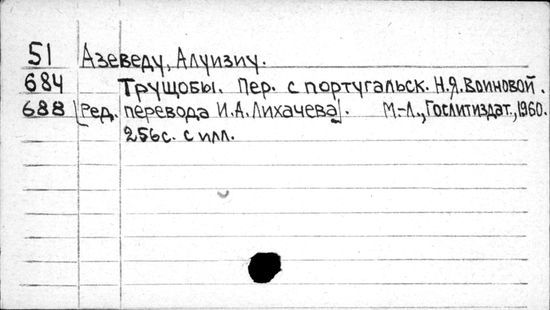 51 Азеведу, Алуизиу.
684 Трущобы. Пер. с португальск. Н.Я. Воиновой.
688 [Ред. перевода И.А. Лихачева]. М.-Л., Гослитиздат, 1960.
256с. с илл.